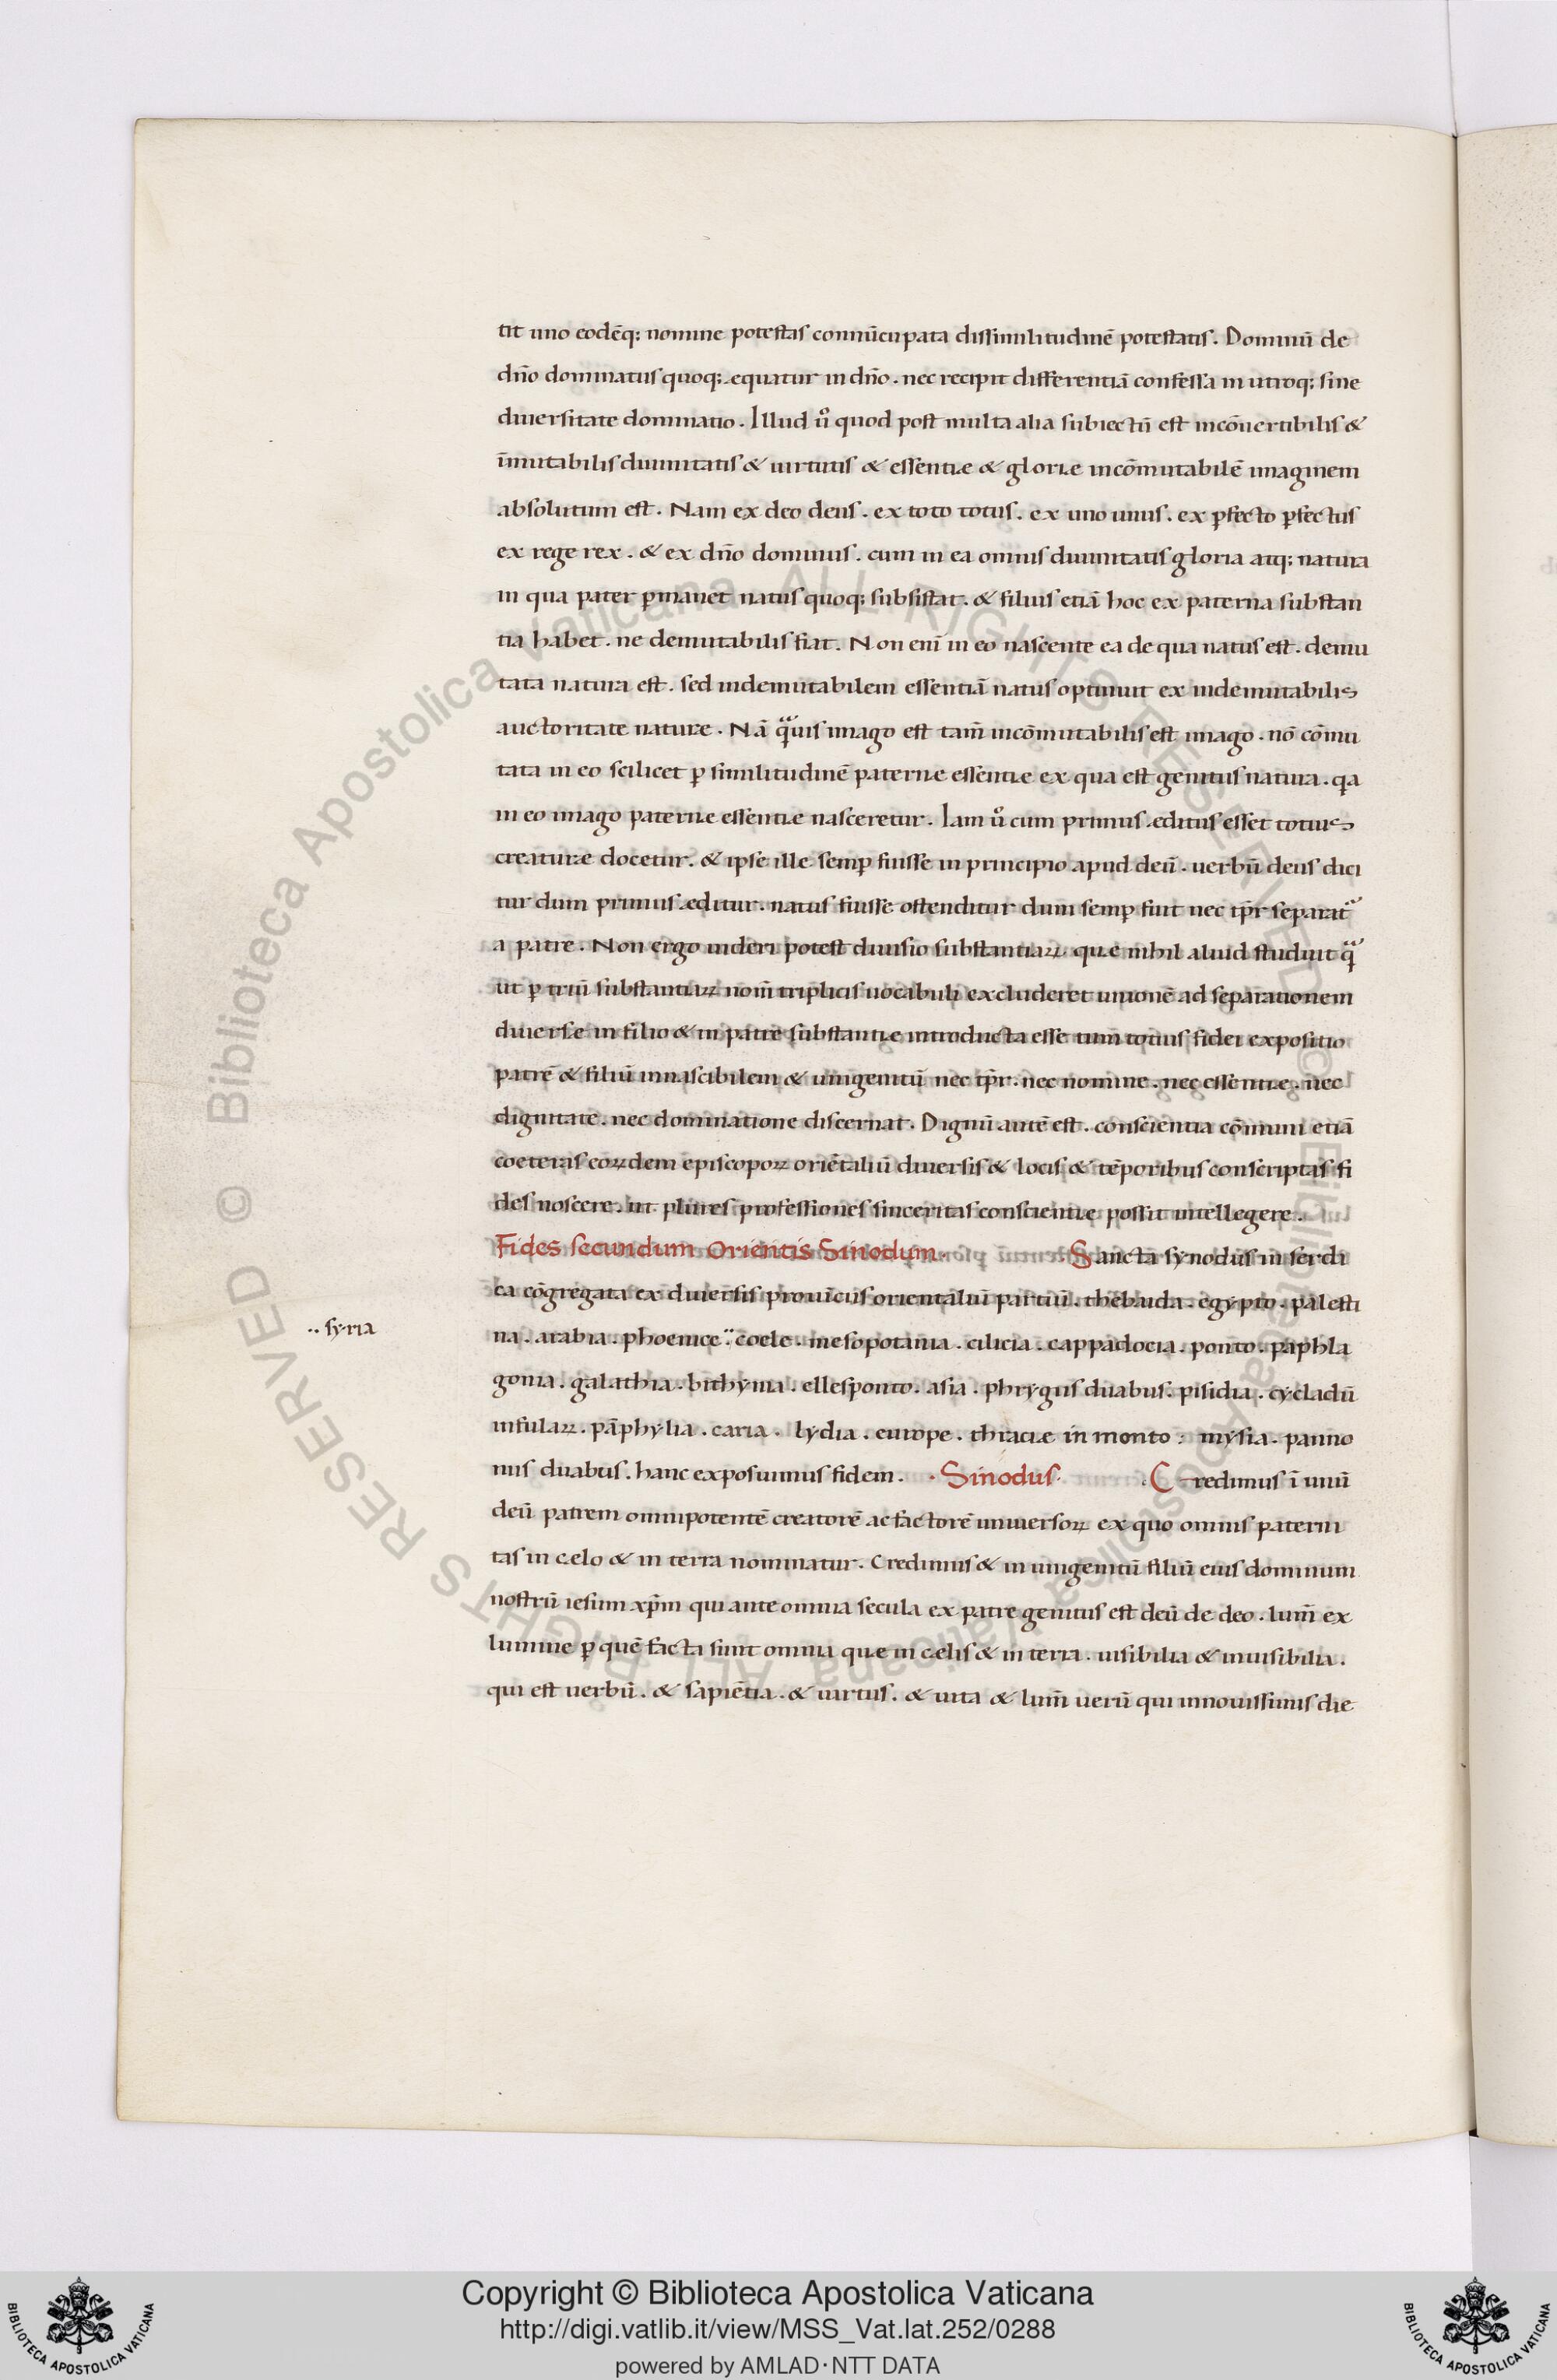 tit uno eodēq; nomine potestas connūcupata dissimilitudinē potestatis. Dominū de
dn̄o dominatus quoq; ęquatur in dn̄o. nec recipit differentiā confessa in utroq; sine
diuersitate dominatio. Illud u̾o quod post multa alia subiectū est incōuertibilis &
īmutabilis diuinitatis & uirtutis & essentiæ & gloriæ incōmutabilē imaginem
absolutum est. Nam ex deo deus. ex toto totus. ex uno unus. ex ꝑfecto ꝑfectus
ex rege rex. & ex dn̄o dominus. cum in ea omnis diuinitatis gloria atq; natura
in qua pater ꝑmanet natus quoq; subsistat. & filius etiā hoc ex paterna substan
tia habet. ne demutabilis fiat. Non enī in eo nascente ea de qua natus est. demu
tata natura est. sed indemutabilem essentiā natus optinuit ex indemutabilis
auctoritate naturæ. Nā qᷓuis imago est tam̄ incōmutabilis est imago. nō cōmu
tata in eo scilicet ꝑ similitudinē paternæ essentiæ ex qua est genitus natura. qa
in eo imago paternæ essentiæ nasceretur. Iam u̾o cum primus ęditus esset totius
creaturæ docetur. & ipse ille semꝑ fuisse in principio apud deū. uerbū deus dici
tur dum primus ęditur. natus fuisse ostenditur dum semꝑ fuit nec tp̄r separatᷓ
a patre. Non ergo uideri potest diuisio substantiaꝝ quæ nihil aliud studuit qᷓ
ut ꝑ triū substantiaꝝ nom̄ triplicis uocabuli excluderet unionē ad separationem
diuersæ in filio & in patre substantiæ introducta esse tum totius fidei expositio
patrē & filiū innascibilem & unigenitū nec tp̄r. nec nomine. nec essentiæ. nec
dignitate. nec dominatione discernat. Dignū autē est. conscientia cōmuni etiā
coeteras eoꝝdem episcopoꝝ oriētaliū diuersis & locis & tēporibus conscriptas fi
des noscere. ut plures professiones sinceritas conscientiæ possit intellegere.
Fides secundum Orientis Sinodum. Sancta synodus in serdi
ca cōgregata ex diuersis prouīciis orientaliū partiū. thebaida. egypto. palesti
na. arabia. phoenice¨. coele. mesopotamia. cilicia. cappadocia. ponto. paphla
.. syria
gonia. galathia. bithynia. ellesponto. asia. phrygiis duabus. pisidia. cycladū
insulaꝝ. pāphylia. caria. lydia. europe. thraciæ in monto: mysia. panno
niis duabus. hanc exposuimus fidem. . Sinodus. Credimus ī unū
deū patrem omnipotentē creatorē ac factorē uniuersoꝝ ex quo omnis paterni
tas in cælo & in terra nominatur. Credimus & in unigenitū filiū eius dominum
nostrū iesum xp̄m qui ante omnia secula ex patre genitus est deū de deo. lum̄ ex
lumine ꝑ quē facta sunt omnia quæ in cælis & in terra. uisibilia & inuisibilia.
qui est uerbū. & sapiētia. & uirtus. & uita & lum̄ uerū qui innouissimis die
Copyright © Biblioteca Apostolica Vaticana
http://digi.vatlib.it/view/MSS_Vat.lat.252/0288
powered by AMLAD·NTT DATA
BIBLIOTECA APOSTOLICA VATICANA
BIBLIOTECA APOSTOLICA VATICANA
© Biblioteca Apostolica Vaticana ALL RIGHTS RESERVED
© Biblioteca Apostolica Vaticana ALL RIGHTS RESERVED